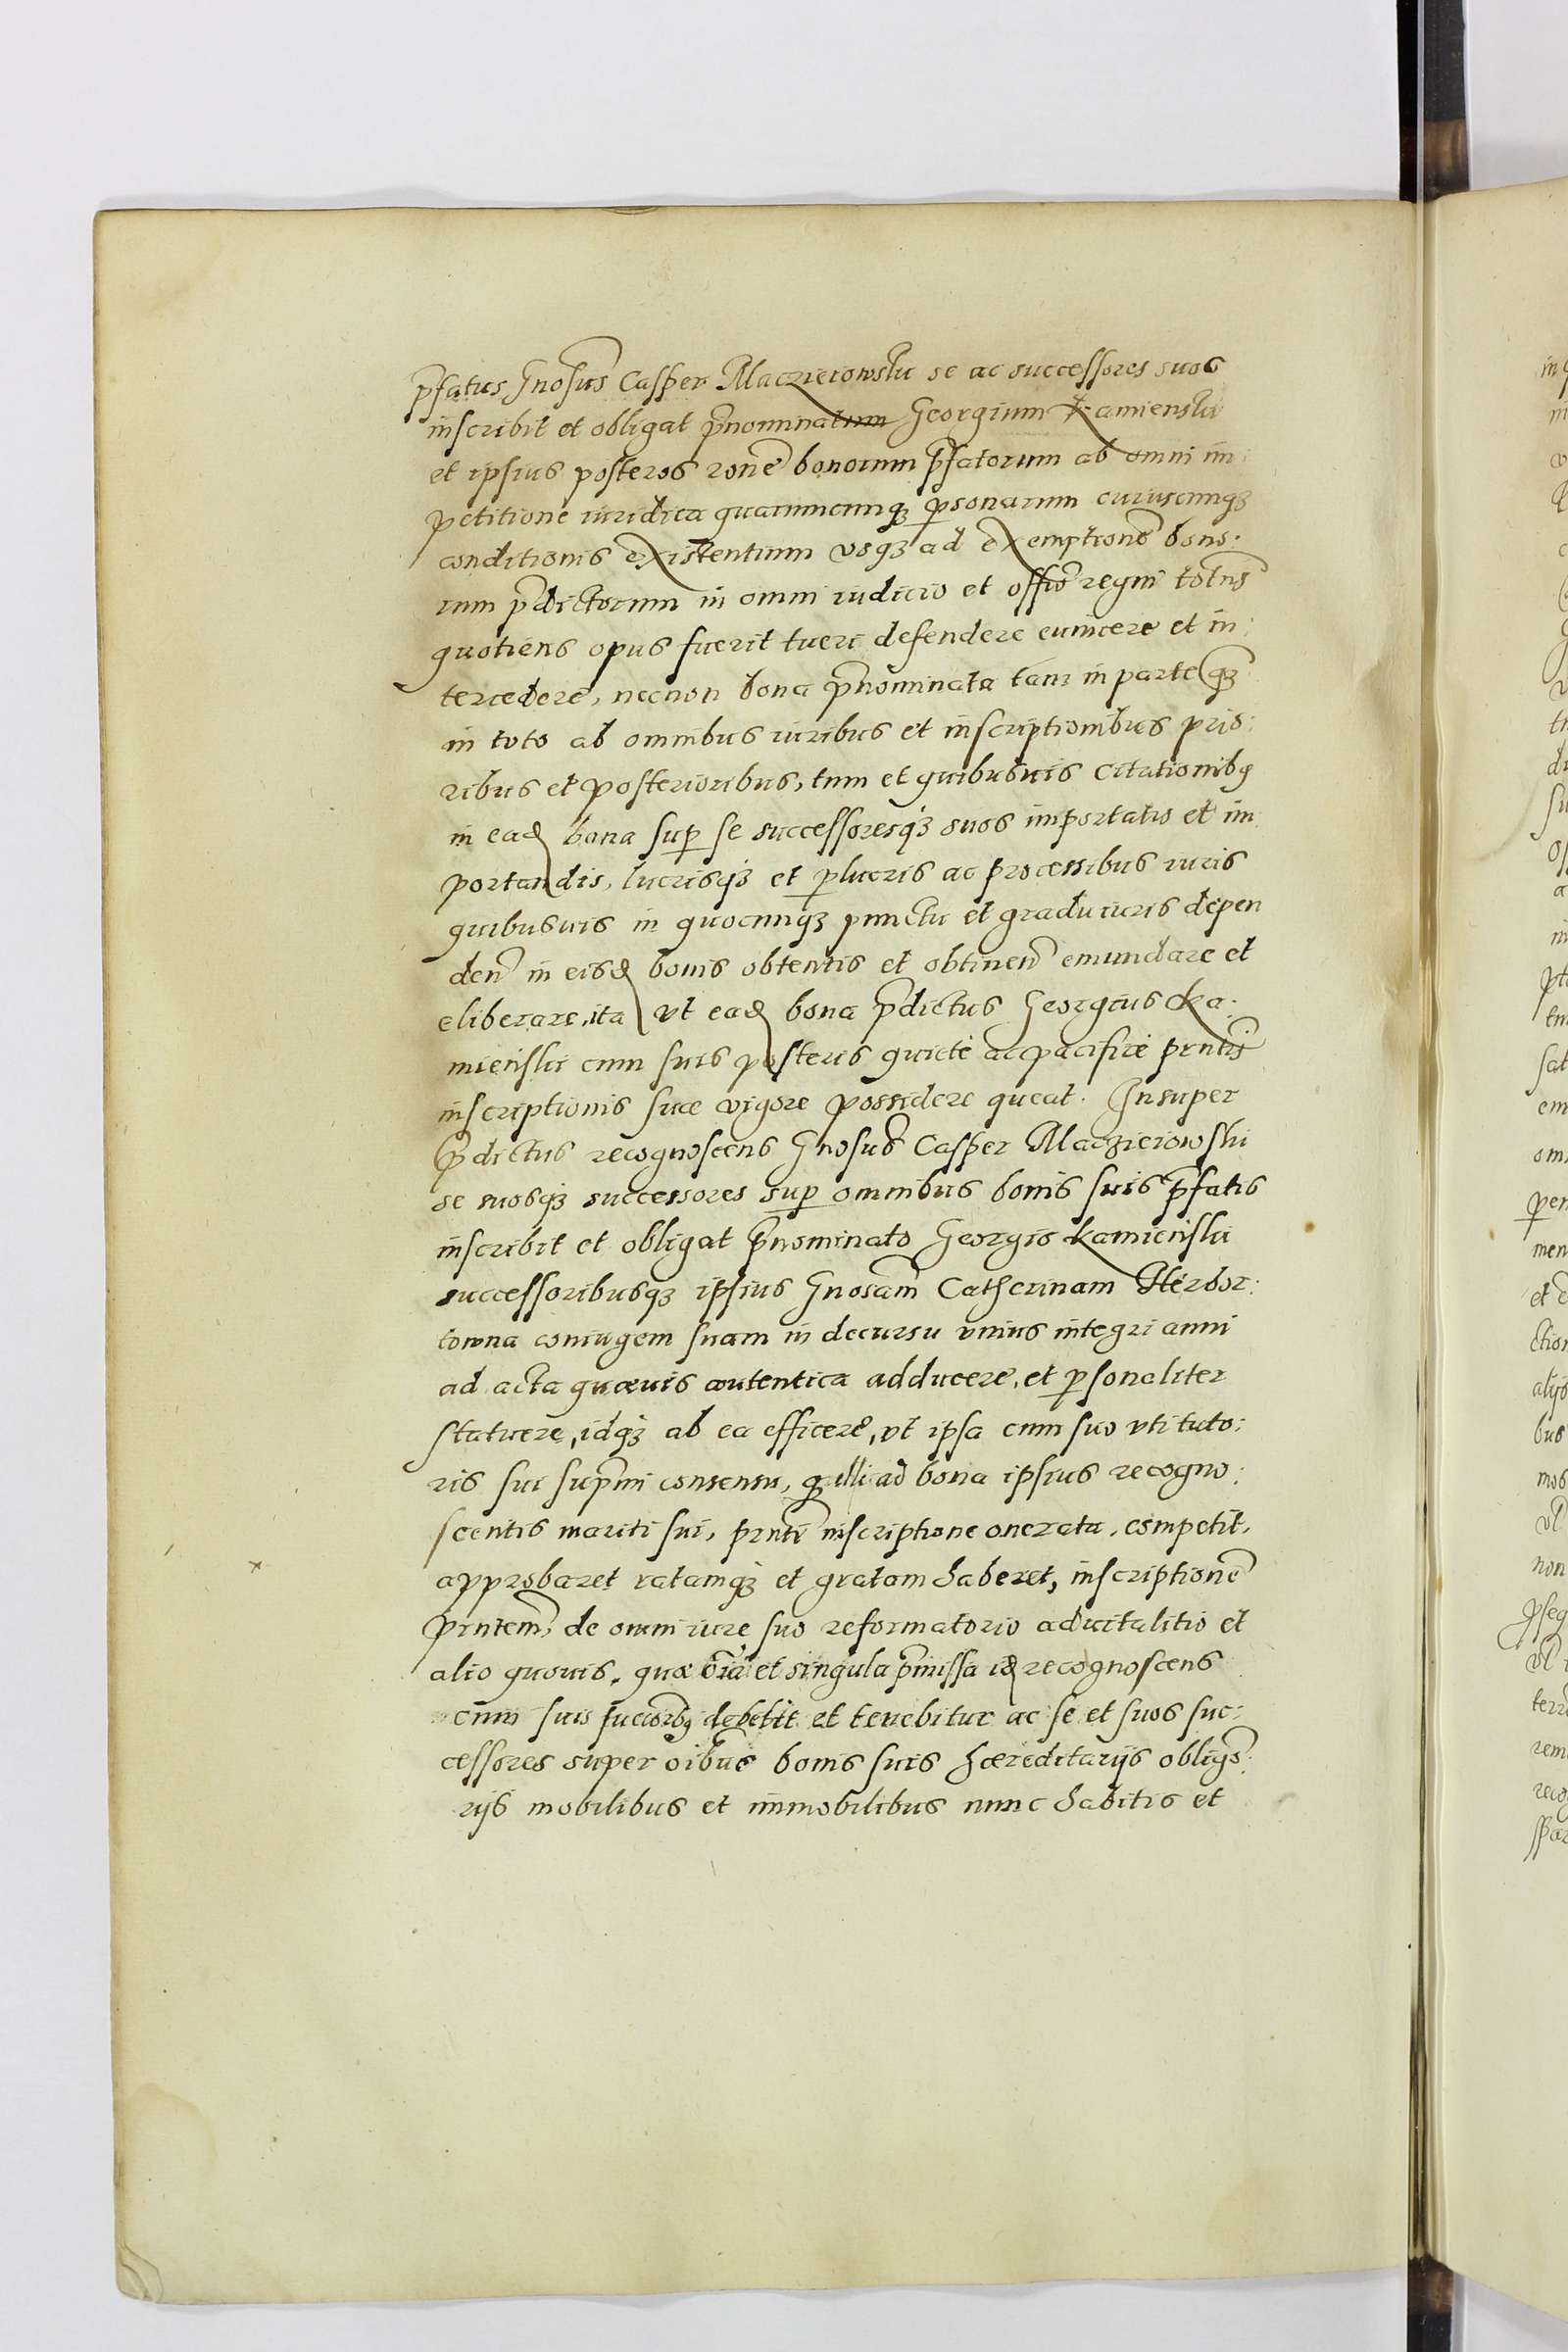 p̃fatus Gnosus̃ Casper Maczieiowski se ac successores suos
inscribit et obligat p̃nominatum Georgium Kamienski
et ipsius posteros rone͂ bonorum p̃fatorum ab omni im:
petitione iuridica quarumcunqʒ ꝑsonarum cuiuscunqʒ
conditionis existentium vsqʒ ad exemptione͂ bono:
rum p̃dictorum in omni iudicio et offio͂ regni totins͂
quotiens opus fuerit tueri defendere euincere et in:
tercedere, necnon bona p̃nominata tam in parte qʒ̃
in toto ab omnibus iuribus et inscriptionibus prio:
ribus et posterioribus, tum et quibusuis citationibꝯ
in eadꝭ bona suꝑ se successoresqʒ suos importatis et im
portandis, lucrisqʒ et ꝑlucris ac processibus iuris
quibusuis in quocunqʒ punctu et gradu iuris depen
den͂ in eisdꝭ bonis obtentis et obtinen͂ emundare et
eliberare, ita vt eadꝭ bona p̃dictus Georgius Ka:
mienski cum suis posteris quietè ac pacificè prntis͂
inscriptionis suæ vigore possidere queat. Insuper
p̃dictus recognoscens Gnosus̃ Casper Maczieiowski
se suosqʒ successores suꝑ omnibus bonis suis p̃fatis
inscribit et obligat p̃nominato Georgio Kamienski
successoribusqʒ ipsius Gnosam̃ Catherinam Herbor:
towna coniugem suam in decursu vnius integri anni
ad acta quæuis autentica adducere, et ꝑsonaliter
statuere, idqʒ ab ea efficere, vt ipsa cum suo vti tuto:
ris sui sup̃mi consensu, q̃ illi ad bona ipsius recogno:
scentis mariti sui, prnti͂ inscriptione onerata, competit,
approbaret ratamqʒ et gratam haberet, inscriptione͂
prntem͂, de omni iure suo reformatorio aduitalitio et
alio quouis. quæ oĩa et singula p̃missa idꝭ recognoscens
cum suis sucioribꝯ debebit et tenebitur ac se et suos suc:
cessores super oibus̃ bonis suis hæreditarijs obligo͂:
rijs mobilibus et immobilibus nunc habitis et